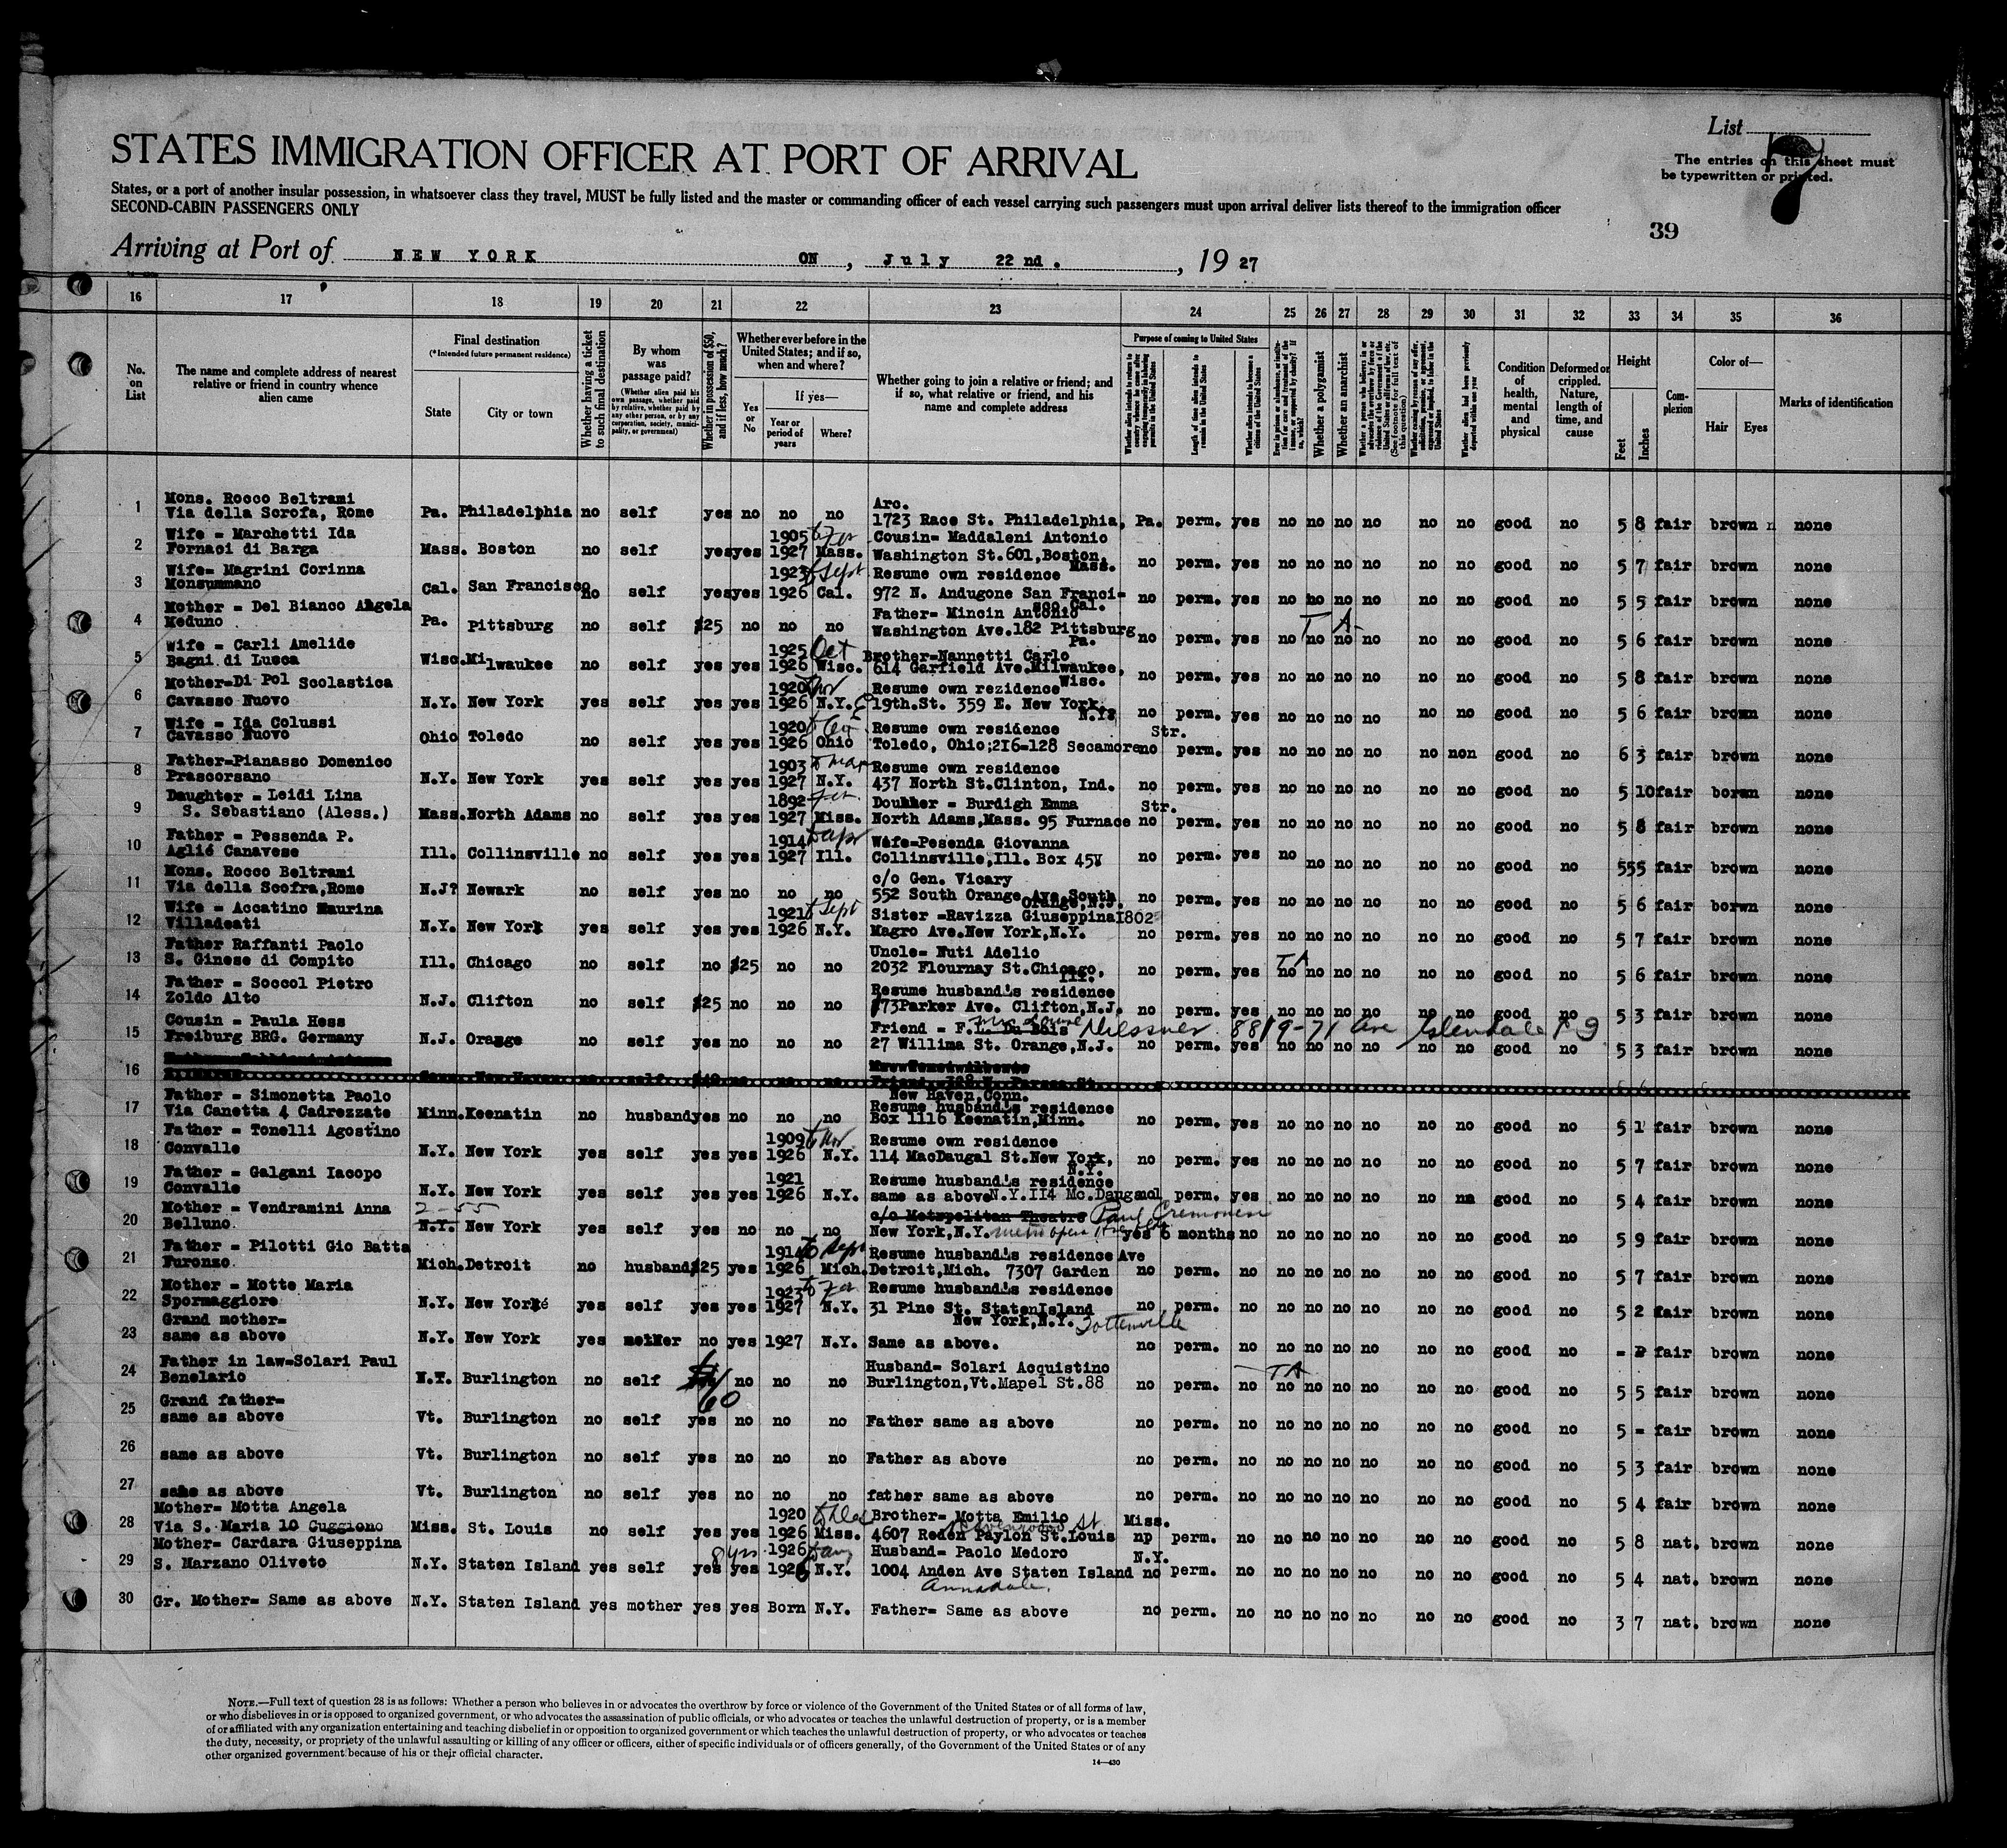 List
7
The entries on this sheet must
be typewritten or printed.
STATES IMMIGRATION OFFICER AT PORT OF ARRIVAL
States, or a port of another insular possession, in whatsoever class they travel, MUST be fully listed and the master or commanding officer of each vessel carrying such passengers must upon arrival deliver lists thereof to the immigration officer
SECOND-CABIN PASSENGERS ONLY
39
Arriving at Port of NEW YORK ON, July 22nd., 1927
16 17 18 19 20 21 22 23 24 25 26 27 28 29 30 31 32 33 34 35 36
No. on List
The name and complete address of nearest relative or friend in country whence alien came
Final destination
(*Intended future permanent residence)
State
City or town
Whether having a ticket to such final destination
By whom was passage paid?
(Whether alien paid his own passage, whether paid by relative, whether paid by any other person, or by any corporation, society, municipality, or government)
Whether in possession of $50, and if less, how much?
Whether ever before in the United States; and if so, when and where?
Yes or No
If yes—
Year or period of years
Where?
Whether going to join a relative or friend; and if so, what relative or friend, and his name and complete address
Purpose of coming to United States
Length of time alien intends to remain in the United States
Whether alien intends to become a citizen of the United States
Whether a polygamist
Whether an anarchist
Condition of health, mental and physical
Deformed or crippled. Nature, length of time, and cause
Height
Feet
Inches
Complexion
Color of—
Hair
Eyes
Marks of identification
1 Mons. Rocco Beltrami
Via della Scrofa, Rome Pa. Philadelphia no self yes no no no Arc.
1723 Race St. Philadelphia, Pa. perm. yes no no no no no no good no 5 8 fair brown none
2 Wife = Marchetti Ida
Fornaci di Barga Mass. Boston no self yes yes 1905 1927 Mass. Cousin= Maddaleni Antonio
Washington St.601,Boston, Mass. no perm. yes no no no no no no good no 5 7 fair brown none
3 Wife= Magrini Corinna
Monsummano Cal. San Francisco no self yes yes 1923 Sept 1926 Cal. Resume own residence
972 N. Andugone San Franci=
sco,Cal. no perm. yes no no no no no no good no 5 5 fair brown none
4 Mother = Del Bianco Angela
Meduno Pa. Pittsburg no self $25 no no no Father= Mincin Antonio
Washington Ave.182 Pittsburg Pa. no perm. yes no no no no no no good no 5 6 fair brown none
T A
5 Wife = Carli Amelide
Bagni di Lucca Wisc. Milwaukee no self yes yes 1925 Oct 1926 Wisc. Brother=Nannetti Carlo
614 Garfield Ave.Milwaukee, Wisc. no perm. yes no no no no no no good no 5 8 fair brown none
6 Mother=Di Pol Scolastica
Cavasso Nuovo N.Y. New York yes self yes yes 1920 Nov 1926 N.Y. Resume own rezidence
19th.St. 359 E. New York, N.Y? no perm. yes no no no no no no good no 5 6 fair brown none
7 Wife = Ida Colussi
Cavasso Nuovo Ohio Toledo no self yes yes 1920 1926 Ohio Resume own residence Str.
Toledo, Ohio;216=128 Secamore no perm. yes no no no no no non good no 6 3 fair brown none
8 Father=Pianasso Domenico
Prascorsano N.Y. New York yes self yes yes 1903 to mar 1927 N.Y. Resume own residence
437 North St.Clinton, Ind. no perm. yes no no no no no no good no 5 10 fair boren none
9 Daughter = Leidi Lina
S. Sebastiano (Aless.) Mass. North Adams no self yes yes 1892 1927 Miss. Doukher = Burdigh Emma Str.
North Adams,Mass. 95 Furnace no perm. yes no no no no no no good no 5 8 fair brown none
10 Father = Pessenda P.
Aglié Canavese Ill. Collinsville no self yes yes 1914 to apr 1927 Ill. Wife=Pesenda Giovanna
Collinsville,Ill. Box 457 no perm. yes no no no no no no good no 555 fair brown none
11 Mons. Rocco Beltrami
Via della Scofra,Rome N.J? Newark no self yes no no no c/o Gen. Vicary
552 South Orange Ave South
Orange,N.J. no perm. yes no no no no no no good no 5 6 fair borwn none
12 Wife = Accatino Maurina
Villadeati N.Y. New York yes self yes yes 1921 to Sept 1926 N.Y. Sister =Ravizza Giuseppina1802
Magro Ave.New York,N.Y. no perm. yes no no no no no no good no 5 7 fair brown none
13 Father Raffanti Paolo
S. Ginese di Compito Ill. Chicago no self no $25 no no Uncle= Nuti Adelio
2032 Flournay St.Chicago, Ill. no perm. yes no no no no no no good no 5 6 fair brown none
T A
14 Father = Soccol Pietro
Zoldo Alto N.J. Clifton no self $25 no no no Resume husband's residence
73Parker Ave. Clifton,N.J. no perm. yes no no no no no no good no 5 3 fair brown none
15 Cousin = Paula Hess
Freiburg BRG. Germany N.J. Orange no self yes no no no Friend = F.L. Du Bois Miessner 8819-71 Ave Glendale
27 Willima St. Orange,N.J. no perm. yes no no no no no no good no 5 3 fair brown none
16
New Haven,Conn.
17 Father = Simonetta Paolo
Via Canetta 4 Cadrezzate Minn. Keenatin no husband yes no no no Resume husband's residence
Box 1116 Keenatin,Minn. no perm. yes no no no no no no good no 5 1 fair brown none
18 Father = Tonelli Agostino
Convalle N.Y. New York yes self yes yes 1909 to Nov 1926 N.Y. Resume own residence
114 MacDaugal St.New York, N.Y. no perm. yes no no no no no no good no 5 7 fair brown none
19 Father = Galgani Iacopo
Convalle N.Y. New York yes self yes yes 1921 1926 N.Y. Resume husband's residence
same as above N.Y.114 Mc.Daugal no perm. yes no no no no no no good no 5 4 fair brown none
20 Mother = Vendramini Anna
Belluno N.Y. New York yes self yes no no no c/o Metropolitan Theatre Paul Cremonesi
New York,N.Y. yes 6 months no no no no no no no good no 5 9 fair brown none
21 Father = Pilotti Gio Batta
Furonzo Mich. Detroit no husband $25 yes 1914 to Sept 1926 Mich. Resume husband's residence Ave
Detroit,Mich. 7307 Garden no perm. no no no no no no no good no 5 7 fair brown none
22 Mother = Motte Maria
Spormaggiore N.Y. New York yes self yes yes 1923 1927 N.Y. Resume husband's residence
31 Pine St. StatenIsland
New York,N.Y. Tottenville no perm. no no no no no no no good no 5 2 fair brown none
23 Grand mother=
same as above N.Y. New York yes mother no yes 1927 N.Y. Same as above. no perm. no no no no no no no good no fair brown none
24 Father in law=Solari Paul
Benelario N.Y. Burlington no self 60 no no no Husband= Solari Acquistino
Burlington,Vt.Mapel St.88 no perm. no no no no no no no good no 5 5 fair brown none
T A
25 Grand father=
same as above Vt. Burlington no self yes no no no Father same as above no perm. no no no no no no no good no 5 = fair brown none
26 same as above Vt. Burlington no self yes no no no Father as above no perm. no no no no no no no good no 5 3 fair brown none
27 same as above Vt. Burlington no self yes no no no father same as above no perm. no no no no no no no good no 5 4 fair brown none
28 Mother= Motta Angela
Via S. Maria 10 Guggiono Miss. St. Louis no self yes yes 1920 to Dec 1926 Miss. Brother= Motta Emilio Miss.
4607 Reden Paylon St.Louis np perm. no no no no no no no good no 5 8 nat. brown none
29 Mother= Cardara Giuseppina
S. Marzano Oliveto N.Y. Staten Island yes self yes yes 8 yrs 1926 N.Y. Husband= Paolo Medoro N.Y.
1004 Anden Ave Staten Island no perm. no no no no no no no good no 5 4 nat. brown none
Annadale
30 Gr. Mother= Same as above N.Y. Staten Island yes mother yes yes Born N.Y. Father= Same as above no perm. no no no no no no no good no 3 7 nat. brown none
NOTE.—Full text of question 28 is as follows: Whether a person who believes in or advocates the overthrow by force or violence of the Government of the United States or of all forms of law,
or who disbelieves in or is opposed to organized government, or who advocates the assassination of public officials, or who advocates or teaches the unlawful destruction of property, or is a member
of or affiliated with any organization entertaining and teaching disbelief in or opposition to organized government or which teaches the unlawful destruction of property, or who advocates or teaches
the duty, necessity, or propriety of the unlawful assaulting or killing of any officer or officers, either of specific individuals or of officers generally, of the Government of the United States or of any
other organized government because of his or their official character.
14—430